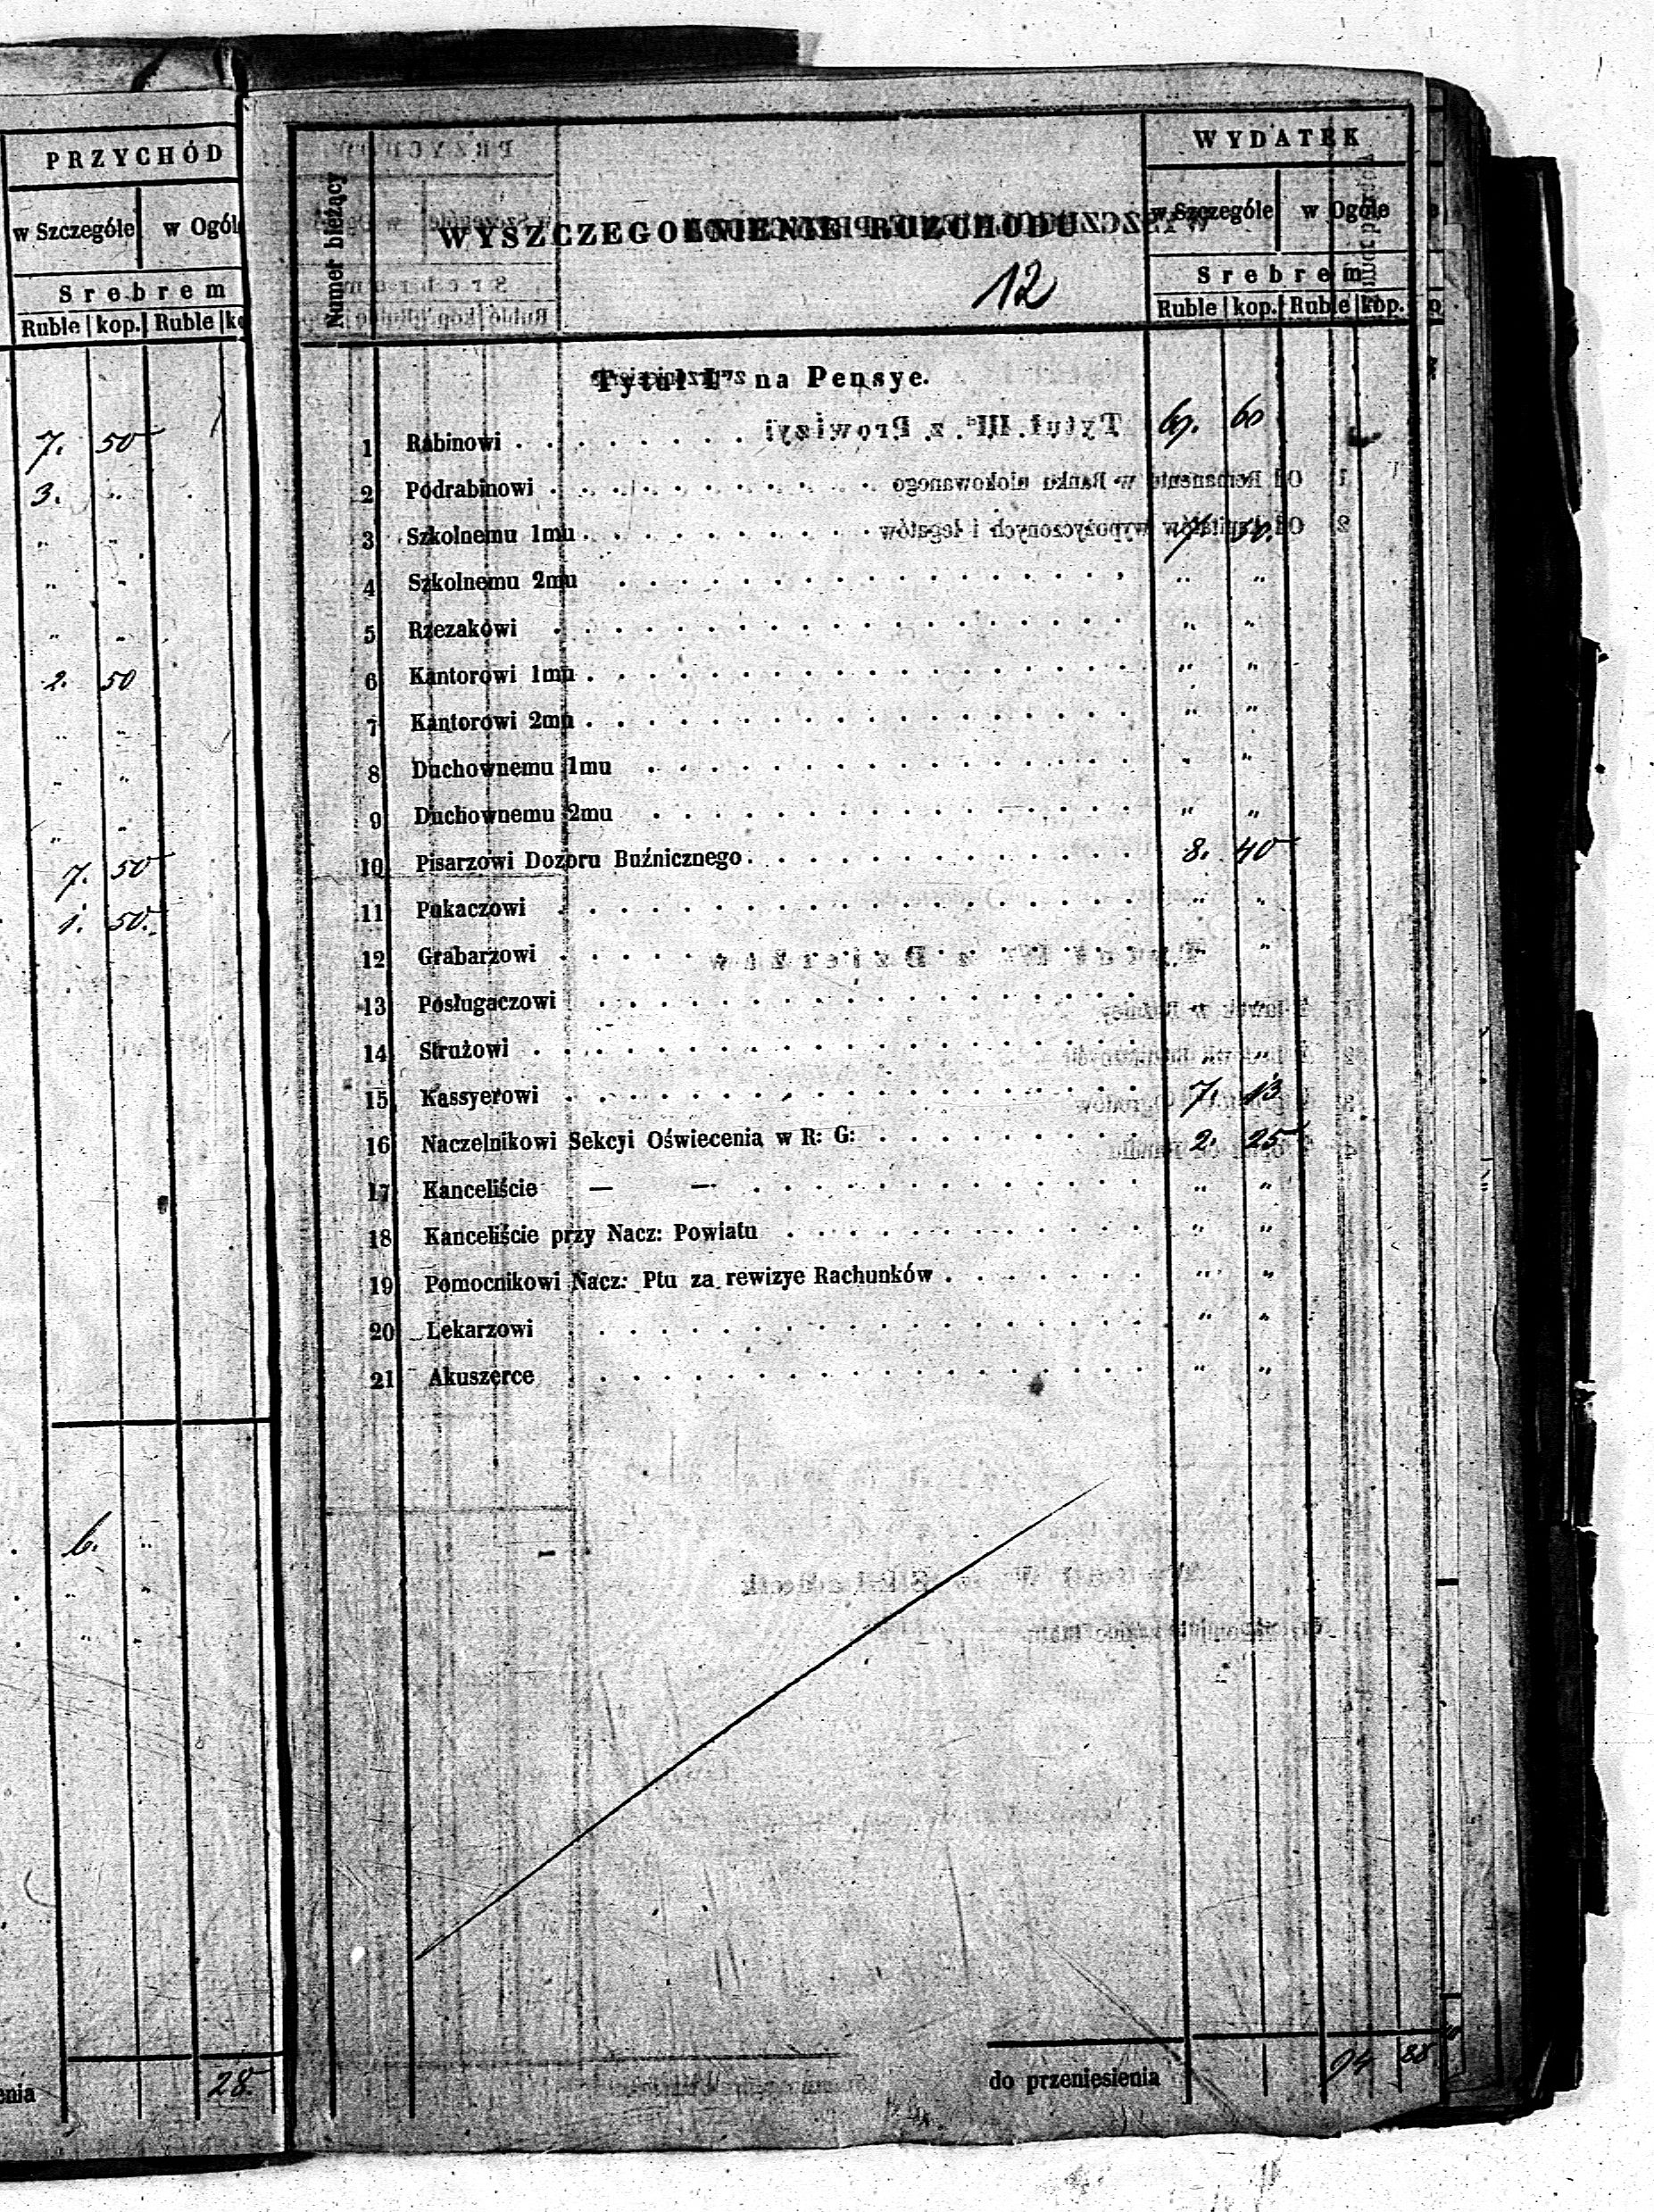 PRZYCHÓD
w Szczególe w Ogól
Srebrem
Ruble kop. Ruble
7. 50
3. „
„ „
„ „
„ „
2. 50
„ „
„ „
„ „
7. 50
1. 50.
6. „
„ „
„ „
28.
Numer bieżący
WYSZCZEGÓLNIENIE ROZCHODU
12
WYDATEK
w Szczególe w Ogóle
Srebrem
Ruble kop. Ruble kop.
Tytuł I na Pensye.
1 Rabinowi 69. 60
2 Podrabinowi
3 Szkolnemu 1mu 7. 50.
4 Szkolnemu 2mu „ „
5 Rzezakowi „ „
6 Kantorowi 1mu „ „
7 Kantorowi 2mu „ „
8 Duchownemu 1mu „ „
9 Duchownemu 2mu „ „
10 Pisarzowi Dozoru Buźnicznego 8. 40
11 Pukaczowi „ „
12 Grabarzowi „
13 Posługaczowi
14 Strużowi „
15 Kassyerowi 7. 13
16 Naczelnikowi Sekcyi Oświecenia w R: G: 2. 25
17 Kanceliście — — „ „
18 Kanceliście przy Nacz: Powiatu „ „
19 Pomocnikowi Nacz: Ptu za rewizye Rachunków „ „
20 Lekarzowi „ „
21 Akuszerce „ „
do przeniesienia 94 88